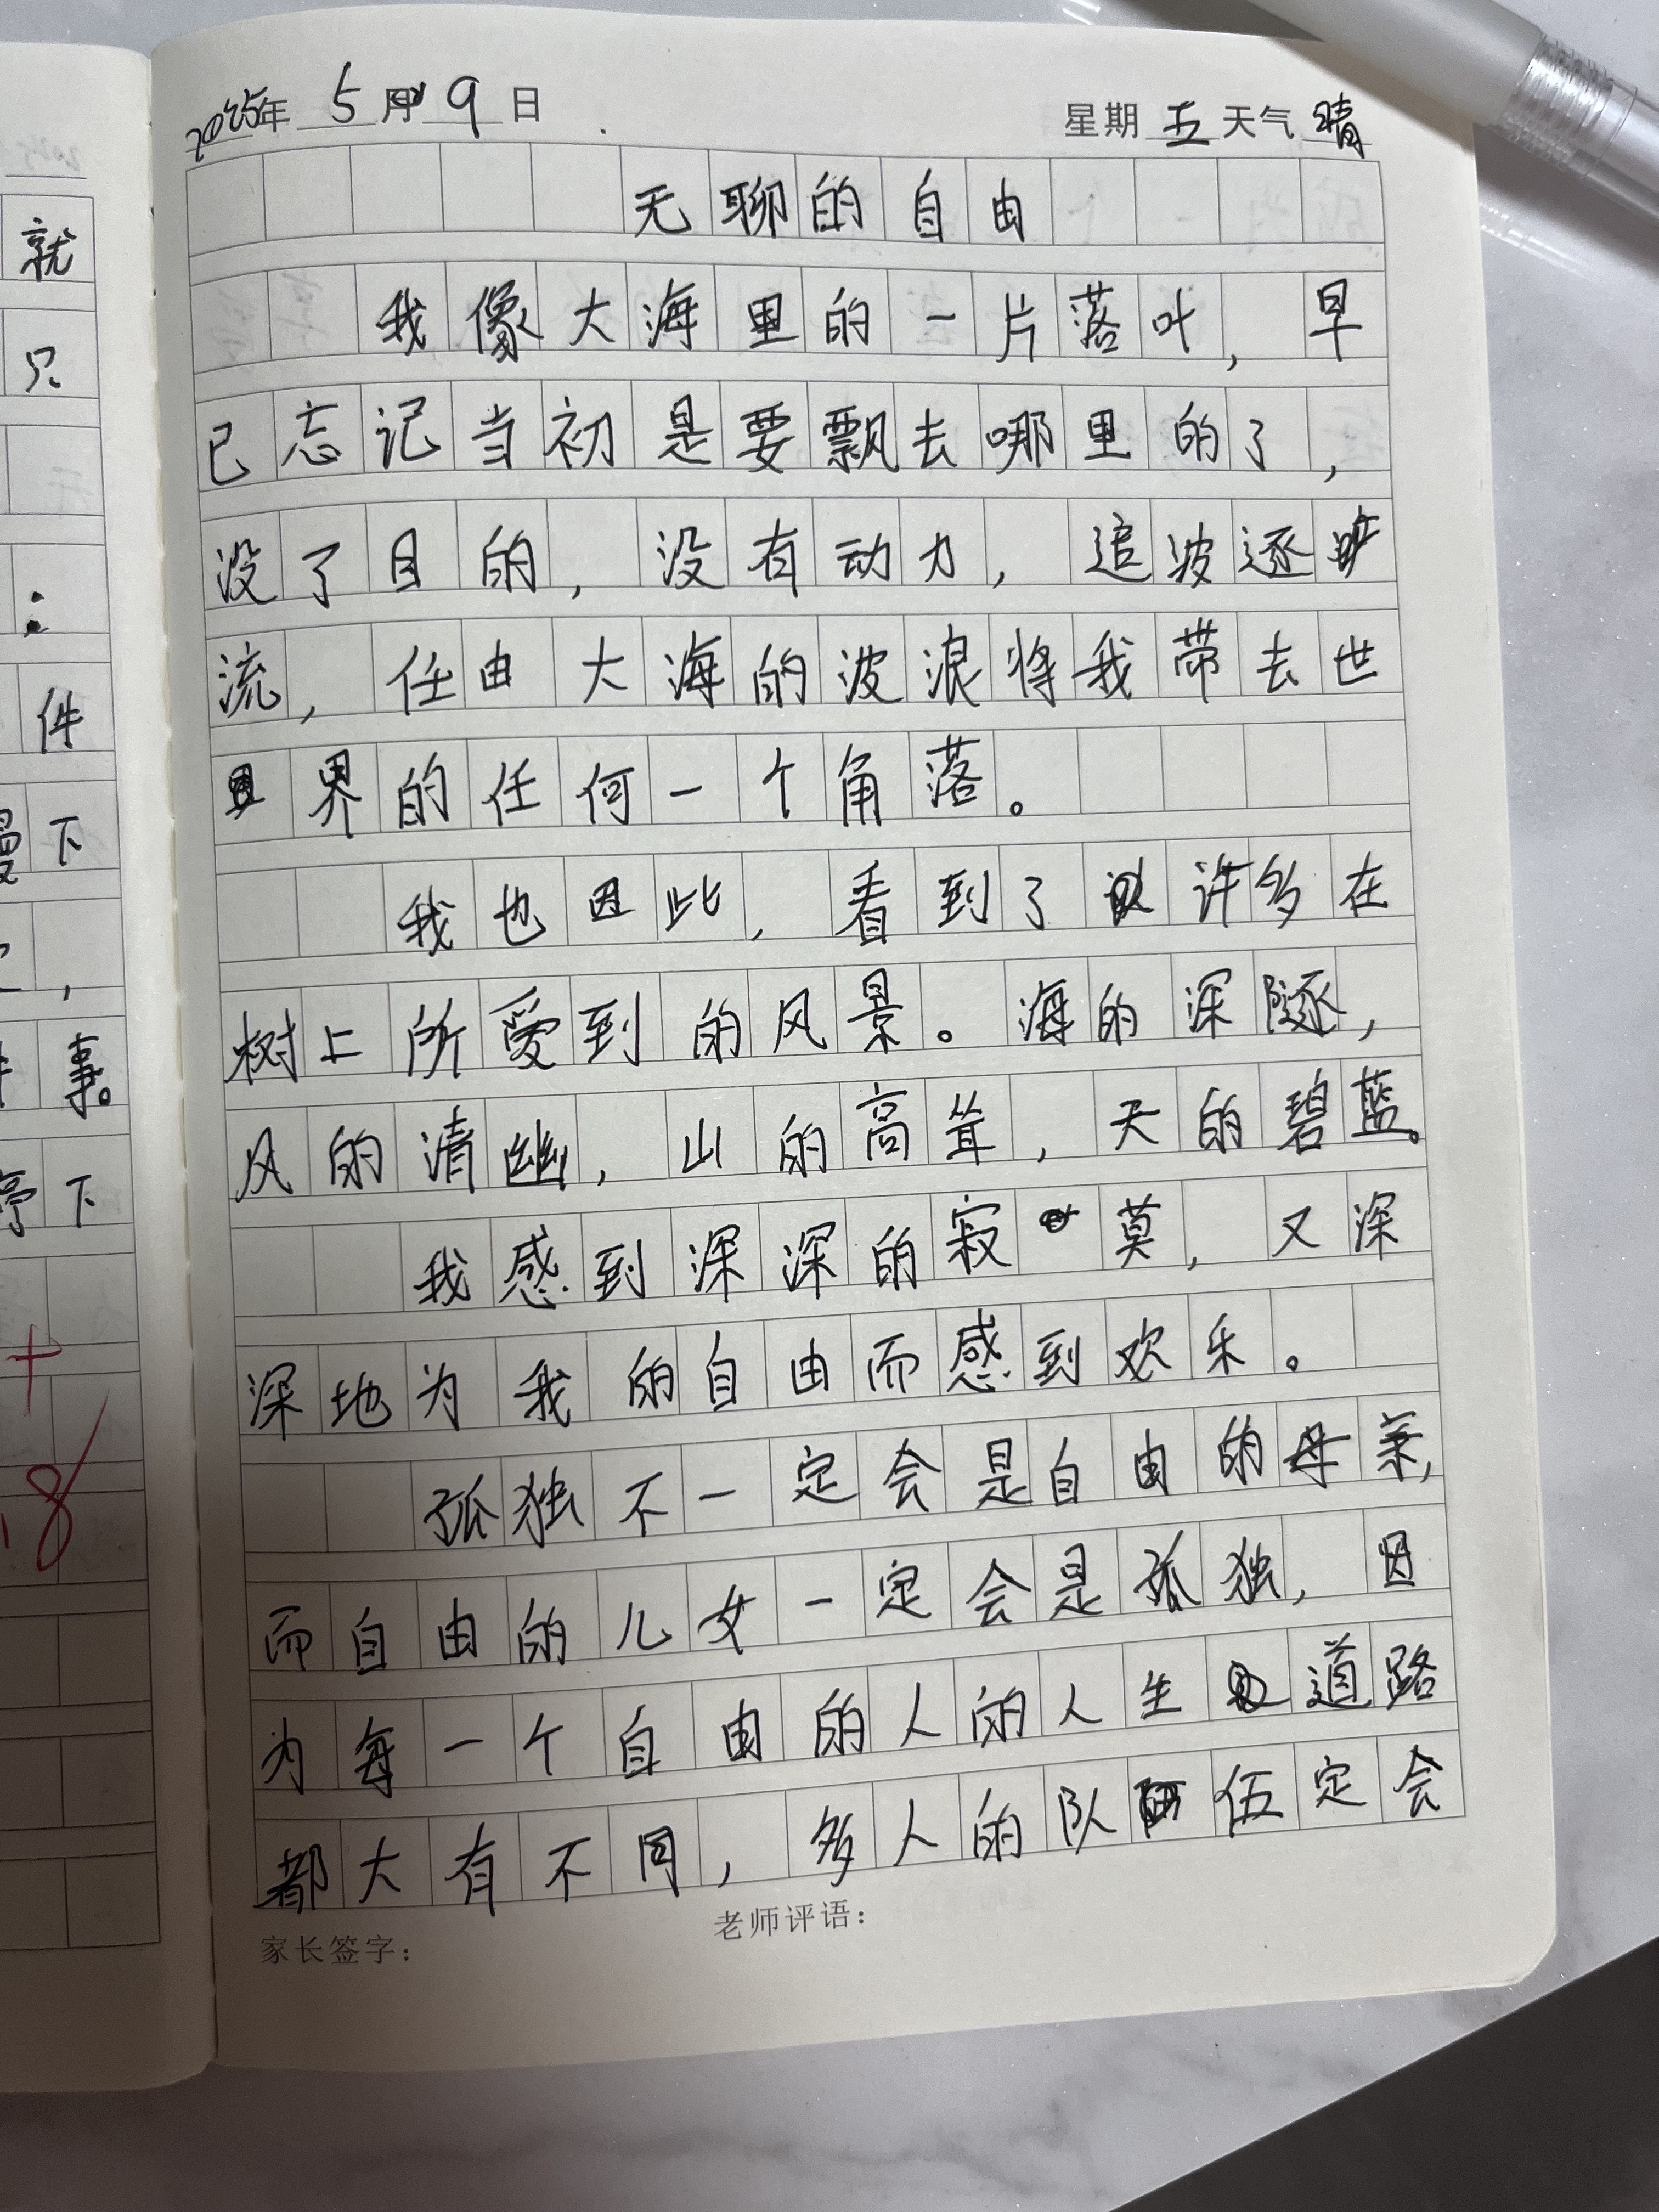 就
只
：
件
下
，
事。
停下
+
8
2025年 5月9日 星期五 天气晴
无聊的自由
我像大海里的一片落叶，早
已忘记当初是要飘去哪里的了，
没了目的，没有动力，追波逐
流，任由大海的波浪将我带去世
界的任何一个角落。
我也因此，看到了许多在
树上所受到的风景。海的深邃，
风的清幽，山的高耸，天的碧蓝。
我感到深深的寂莫，又深
深地为我的自由而感到欢乐。
孤独不一定会是自由的母亲，
而自由的儿女一定会是孤独，因
为每一个自由的人的人生道路
都大有不同，多人的队伍定会
家长签字： 老师评语：